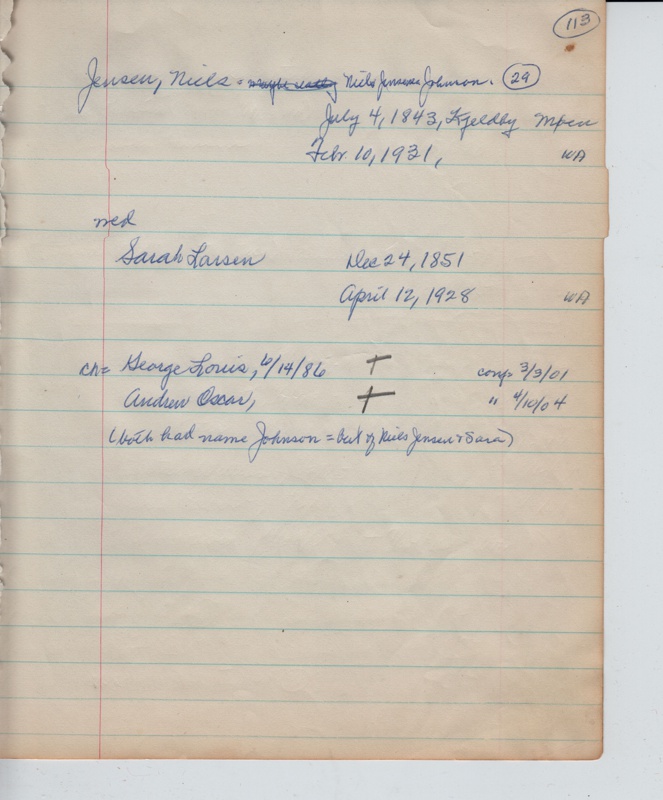 113
Jensen, Niels = Niels Jensen Johnson. 29
July 4, 1843, Kjeldby Moen
Febr. 10, 1931, WA
med
Sarah Larsen Dec 24, 1851
April 12, 1928 WA
ch= George Louis, 6/14/86 + conf= 3/3/01
Andrew Oscar, + " 4/10/04
(both had name Johnson = but of Niels Jensen & Sara)